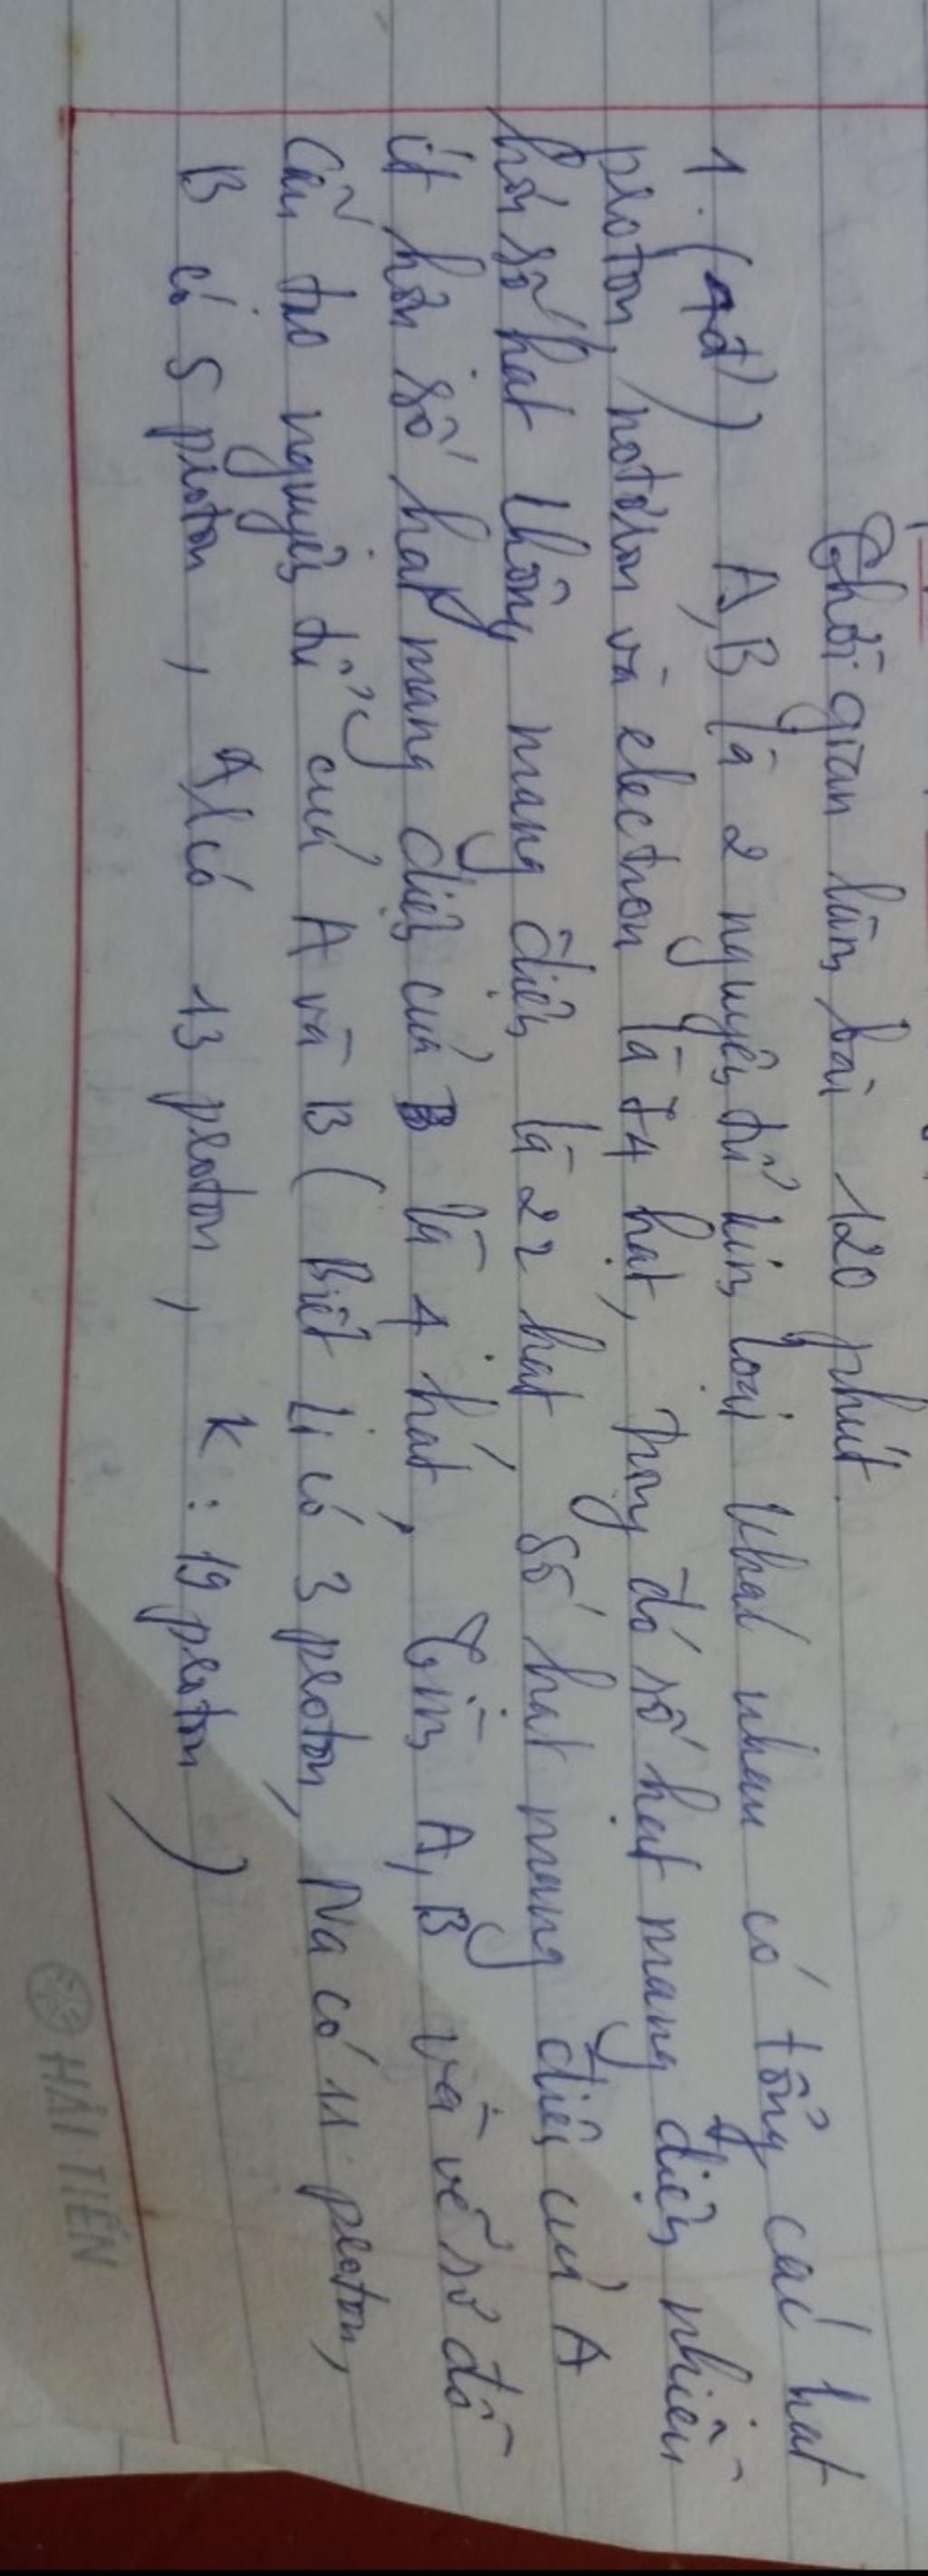 Thời gian làm bài 120 phút.
1. (4đ) A, B là 2 nguyên tử kim loại khác nhau có tổng các hạt
proton, nơtơron và electron là 74 hạt, trong đó số hạt mang điện nhiều
hơn số hạt không mang điện là 22 hạt, số hạt mang điện của A
ít hơn số hạt mang điện của B là 4 hát, Tìm A, B và vẽ sơ đồ
Cấu tạo nguyên tử của A và B ( Biết Li có 3 proton, Na có 11 proton,
B có 5 proton, Al có 13 proton, K : 19 proton )
HẢI TIẾN